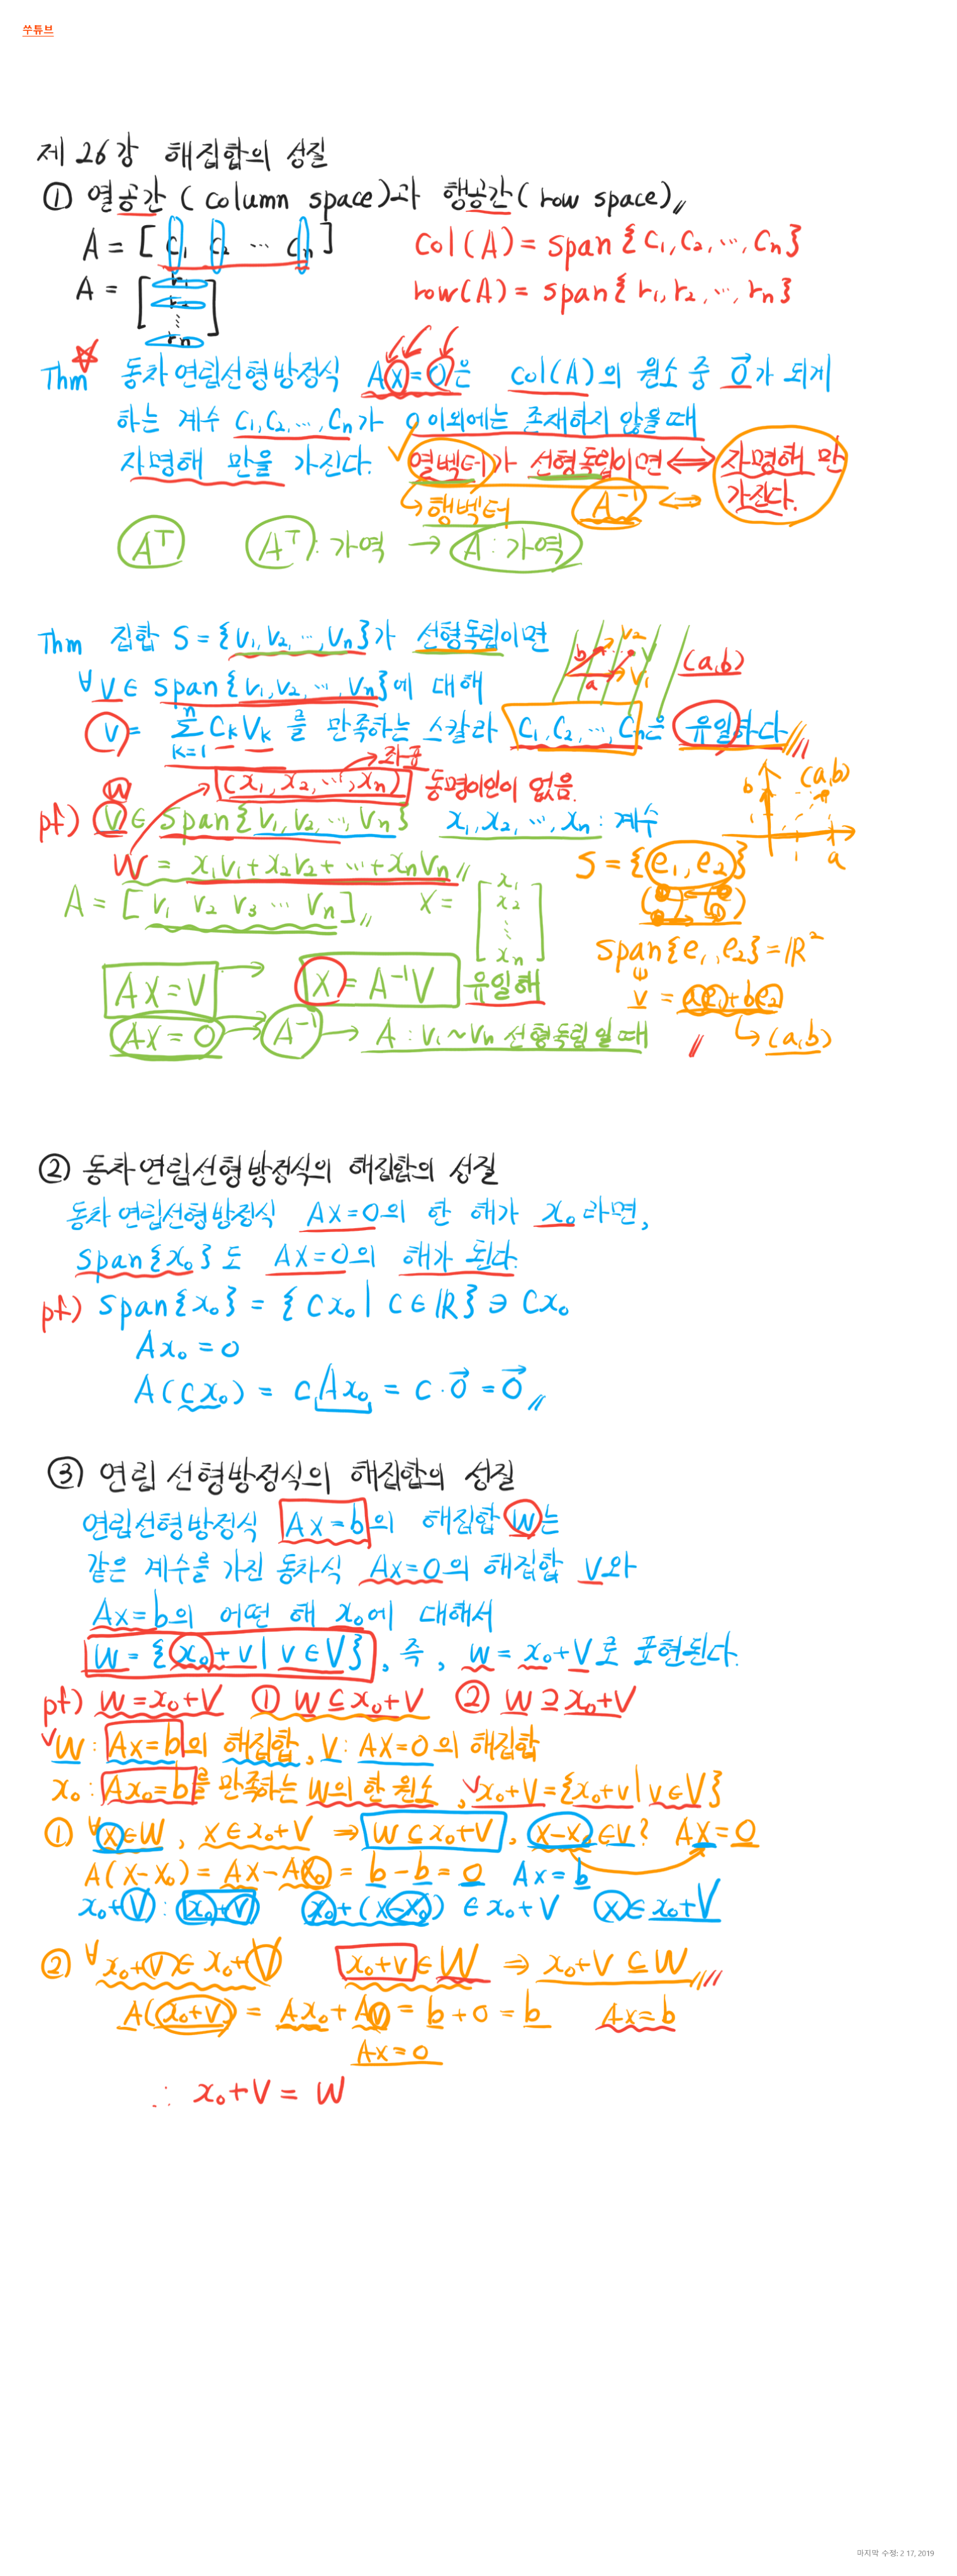 쑤튜브
제 26강 해집합의 성질
① 열공간 ( column space )과 행공간 ( row space )
A = [ c₁ c₂ ⋯ cₙ ]
col(A) = span{c₁, c₂, ⋯, cₙ}
A = [ r₁ r₂ ⋮ rₙ ]
row(A) = span{r₁, r₂, ⋯, rₙ}
Thm 동차 연립선형방정식 Ax=0은 col(A)의 원소 중 0⃗가 되게
하는 계수 c₁, c₂, ⋯, cₙ가 0 이외에는 존재하지 않을 때
자명해 만을 가진다. 열벡터가 선형독립이면 ⟺ 자명해 만 가진다.
↳ 행벡터 A⁻¹ ⟺
Aᵀ Aᵀ : 가역 → A : 가역
Thm 집합 S = {v₁, v₂, ⋯, vₙ}가 선형독립이면
b v₂ v a v₁ (a,b)
∀v ∈ span{v₁, v₂, ⋯, vₙ}에 대해
v = Σₖ₌₁ⁿ cₖvₖ 를 만족하는 스칼라 c₁, c₂, ⋯, cₙ은 유일하다
→ 좌표
w (x₁, x₂, ⋯, xₙ) 동명이인이 없음.
b (a,b) 1 a
pf) v ∈ span{v₁, v₂, ⋯, vₙ} x₁, x₂, ⋯, xₙ : 계수
w = x₁v₁ + x₂v₂ + ⋯ + xₙvₙ
S = {e₁, e₂}
A = [ v₁ v₂ v₃ ⋯ vₙ ] x = [ x₁ x₂ ⋮ xₙ ]
span{e₁, e₂} = ℝ²
Ax = v → x = A⁻¹v 유일해
v = ae₁ + be₂
Ax = 0 → A⁻¹ → A : v₁ ~ vₙ 선형독립일 때
↳ (a,b)
② 동차연립선형방정식의 해집합의 성질
동차 연립선형방정식 Ax=0의 한 해가 x₀ 라면,
span{x₀}도 Ax=0의 해가 된다.
pf) span{x₀} = {cx₀ | c ∈ ℝ} ∋ cx₀
Ax₀ = 0
A(cx₀) = cAx₀ = c·0⃗ = 0⃗
③ 연립 선형방정식의 해집합의 성질
연립선형방정식 Ax=b의 해집합 W는
같은 계수를 가진 동차식 Ax=0의 해집합 V와
Ax=b의 어떤 해 x₀에 대해서
W = {x₀+v | v∈V}, 즉, W = x₀+V로 표현된다.
pf) W = x₀+V ① W ⊆ x₀+V ② W ⊇ x₀+V
W : Ax=b의 해집합, V : Ax=0의 해집합
x₀ : Ax₀=b를 만족하는 W의 한 원소, x₀+V = {x₀+v | v∈V}
① ∀x∈W, x∈x₀+V ⇒ W ⊆ x₀+V, x-x₀∈V? Ax=0
A(x-x₀) = Ax-Ax₀ = b-b = 0 Ax=b
x₀+V : x₀+v x₀+(x-x₀) ∈ x₀+V x∈x₀+V
② ∀x₀+v ∈ x₀+V x₀+v∈W ⇒ x₀+V ⊆ W
A(x₀+v) = Ax₀+Av = b+0 = b Ax=b
Ax=0
∴ x₀+V = W
마지막 수정: 2 17, 2019